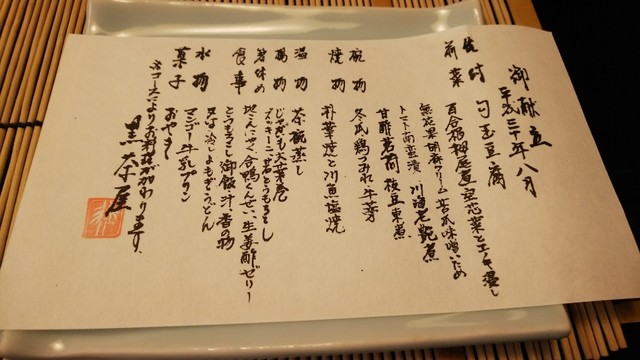 御献立
平成三十年八月
先付 勾玉豆腐
前菜 百合根 空芯菜とエノキ浸し
無花果胡麻クリーム 苦瓜味噌いため
トマト南蛮漬 川海老艶煮
甘酢茗荷 枝豆東煮
椀物 冬瓜 鶏つみれ 牛蒡
焼物 朴葉焼と川魚塩焼
温物 茶碗蒸し
揚物 じゃがもち大葉巻
ズッキーニ 若とうもろこし
箸休め 地こんにゃく 合鴨くんせい 生姜酢ゼリー
食事 とうもろこし御飯 汁 香の物
又は 冷しよもぎうどん
水物 マンゴー牛乳プリン
菓子 おやき
※コースによりお料理が変わります。
黒茶屋